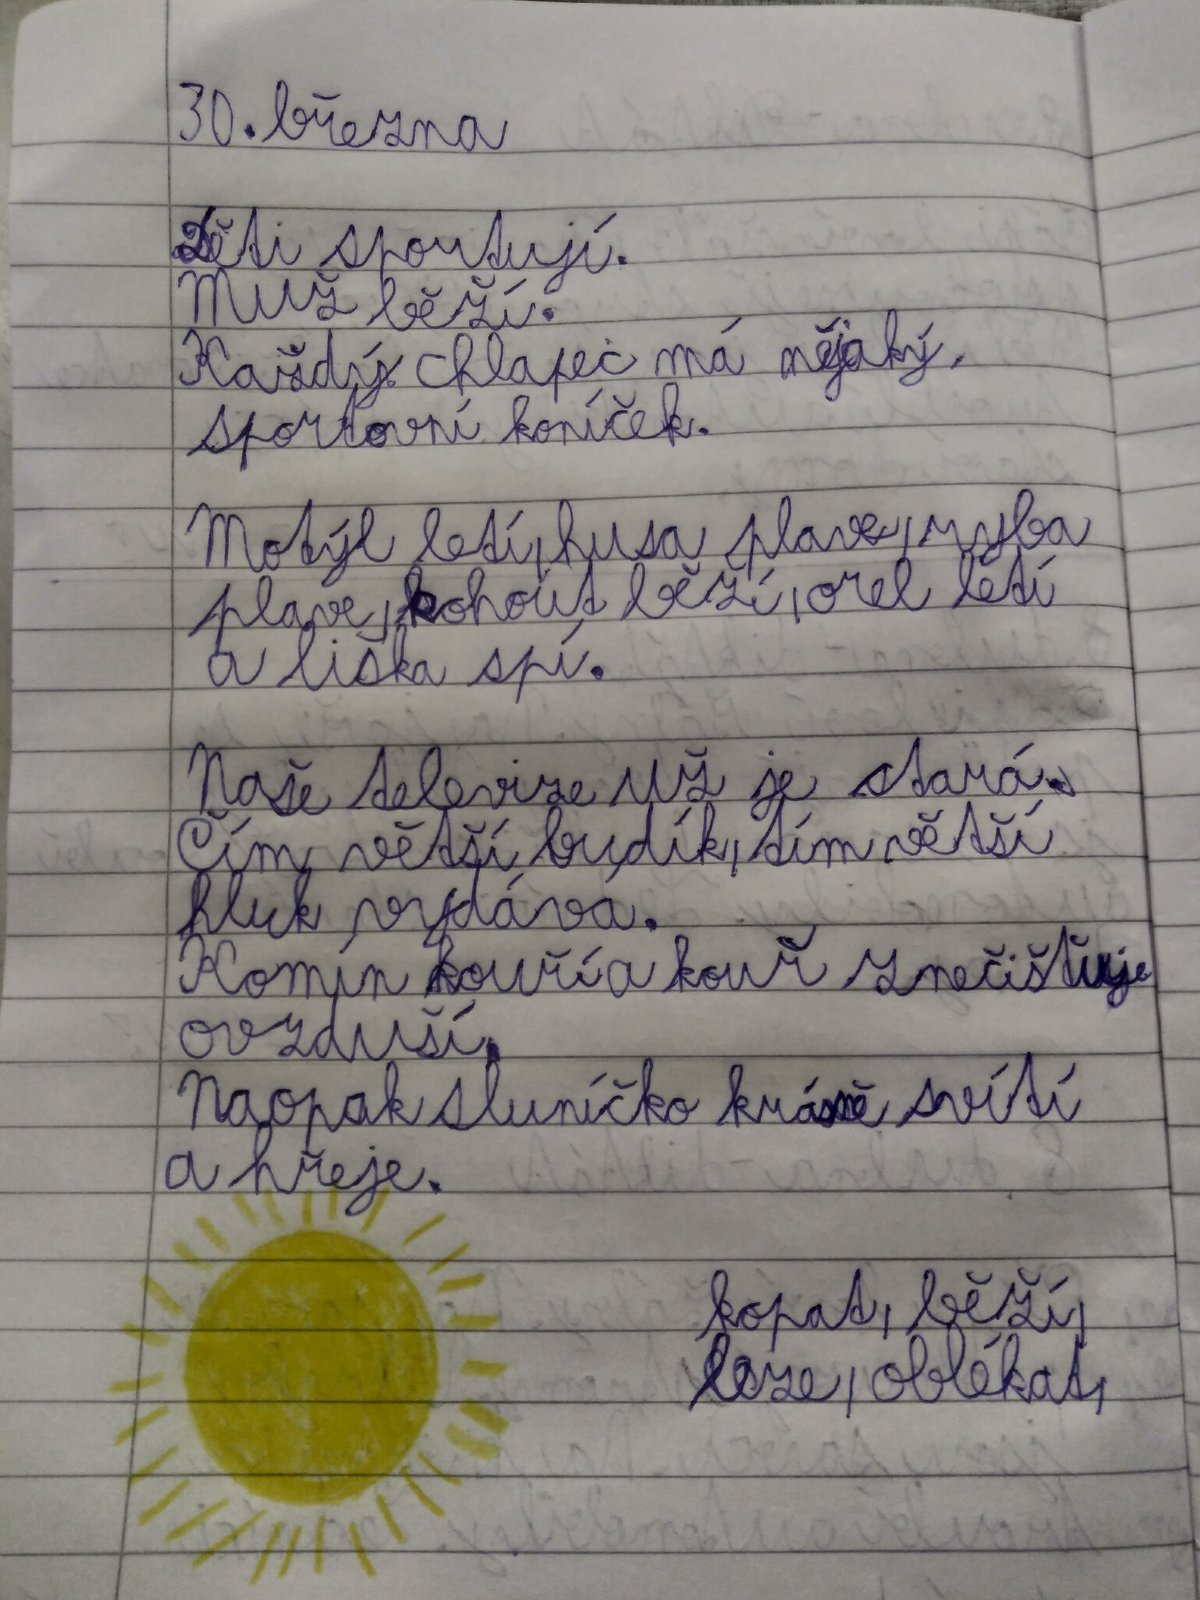 30. března
Děti sportují.
Muž běží.
Každý chlapec má nějaký
sportovní koníček.
Motýl letí, husa plave, ryba
plave, kohout běží, orel letí
a liška spí.
Naše televize už je stará.
Čím větší budík, tím větší
hluk vydává.
Komín kouří a kouř znečišťuje
ovzduší.
Naopak sluníčko krásně svítí
a hřeje.
kopat, běží,
leze, oblékat,